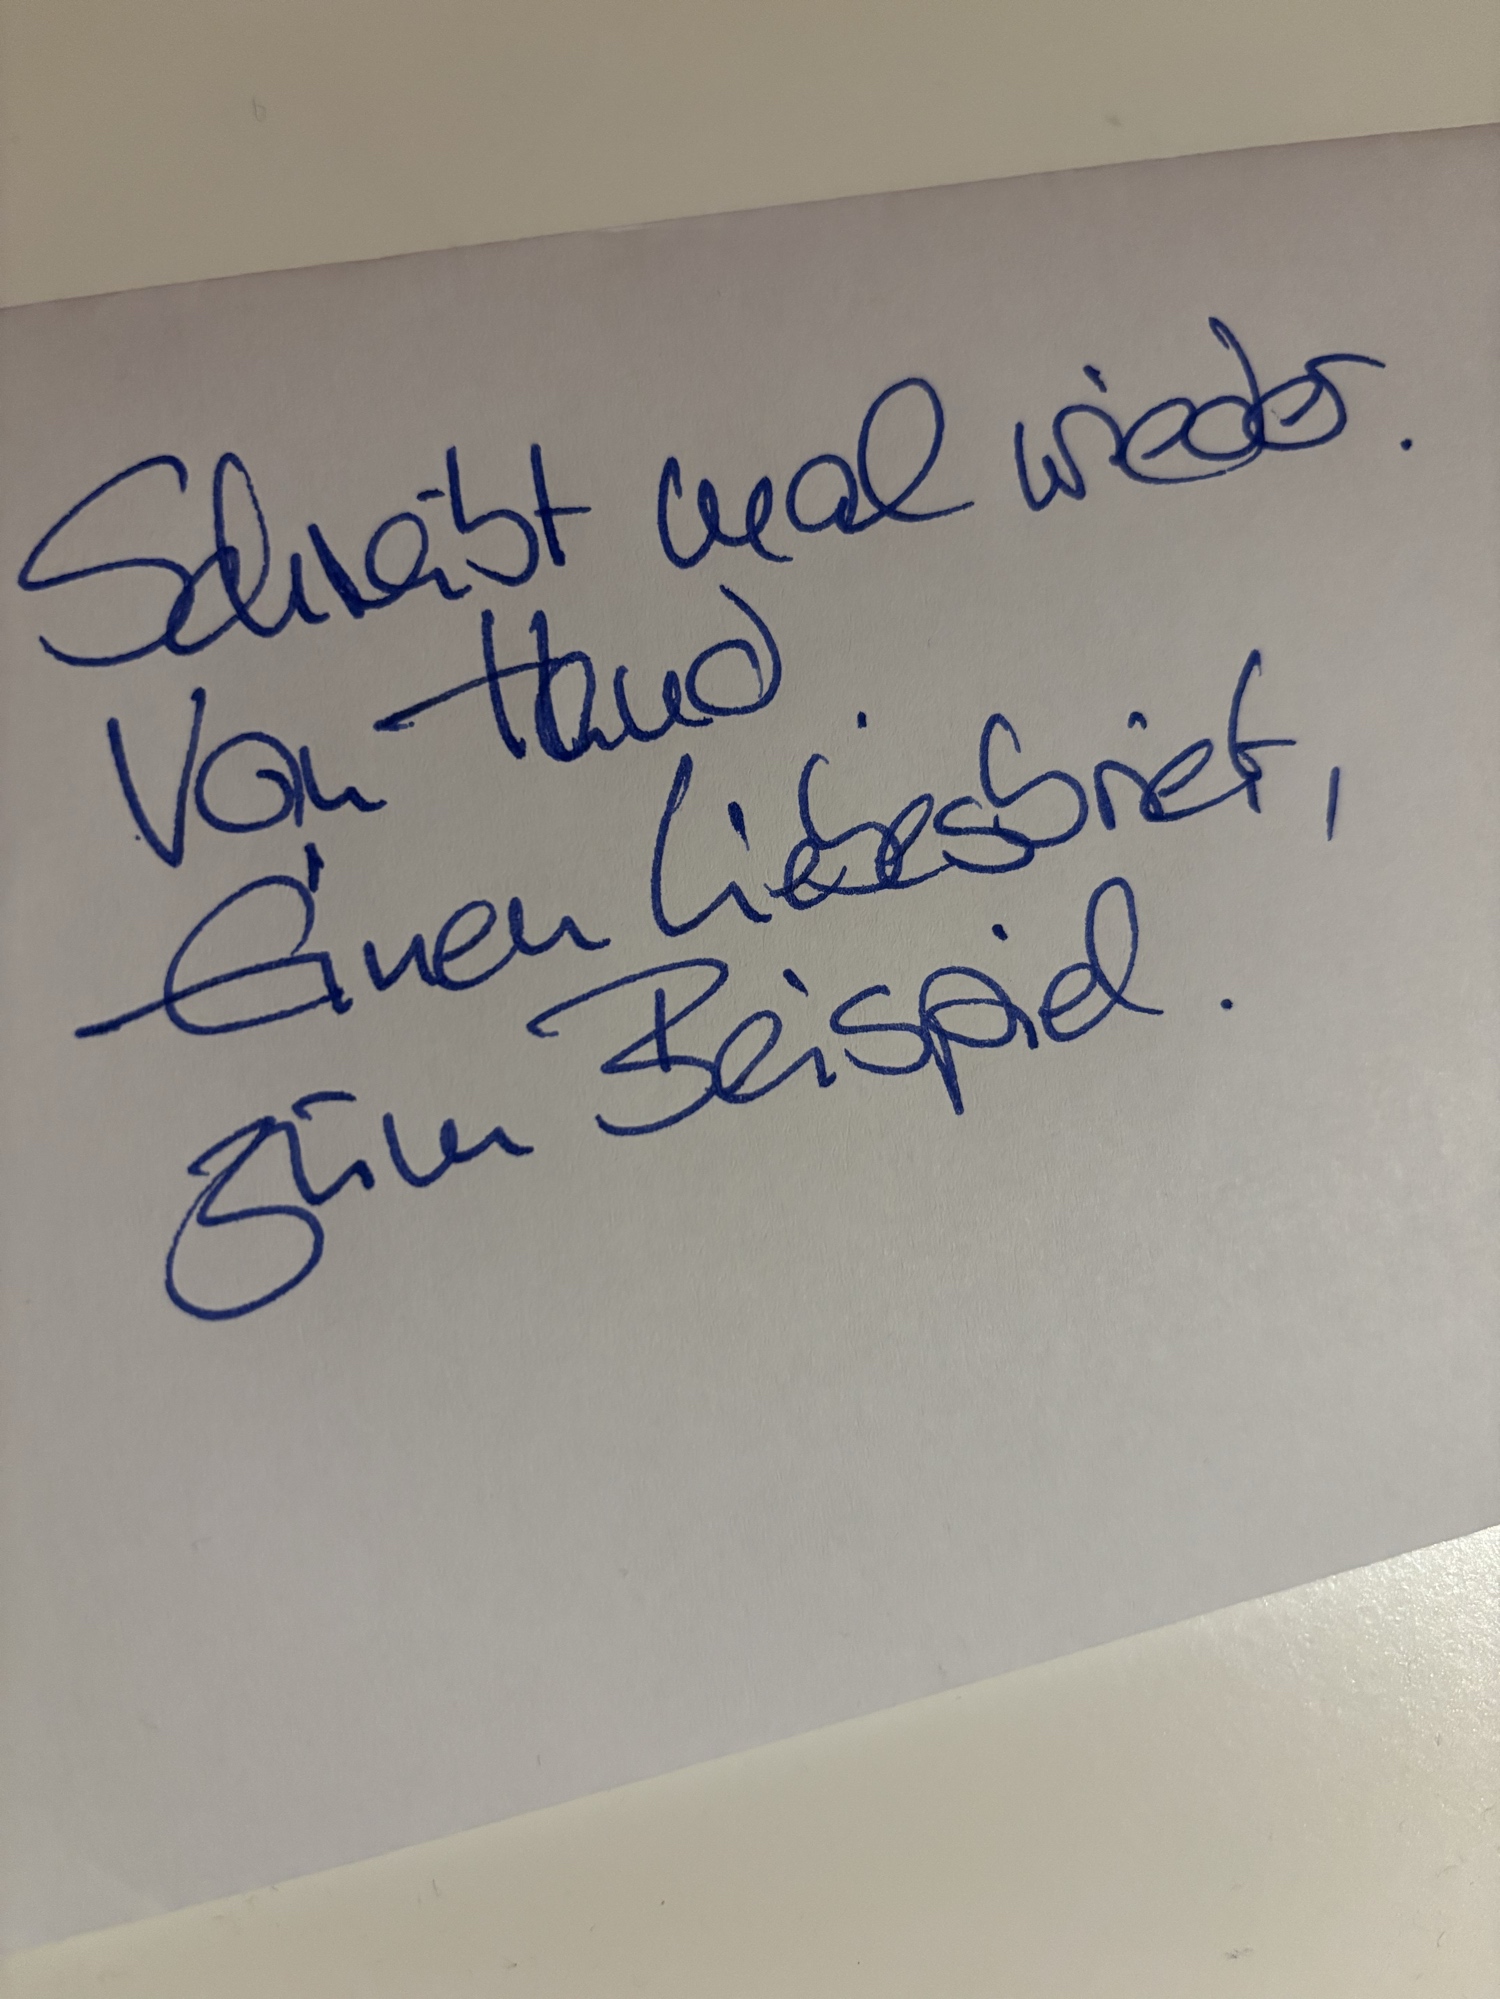 Schreibt mal wieder.
Von Hand.
Einen Liebesbrief,
zum Beispiel.